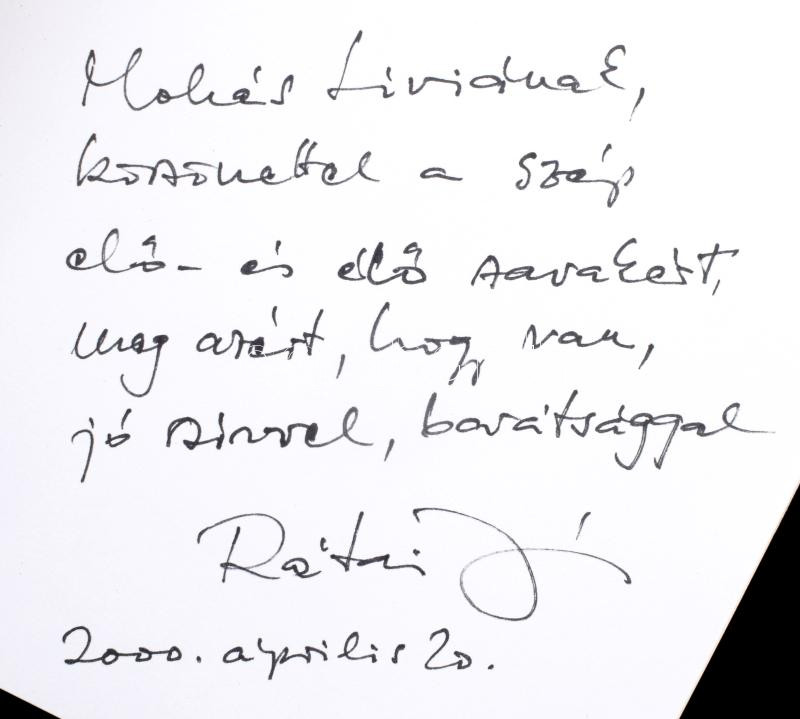 Mohás Líviának,
köszönettel a szép
elő- és élő szavakért,
meg azért, hogy van,
jó szívvel, barátsággal
Rátki J
2000. április 20.